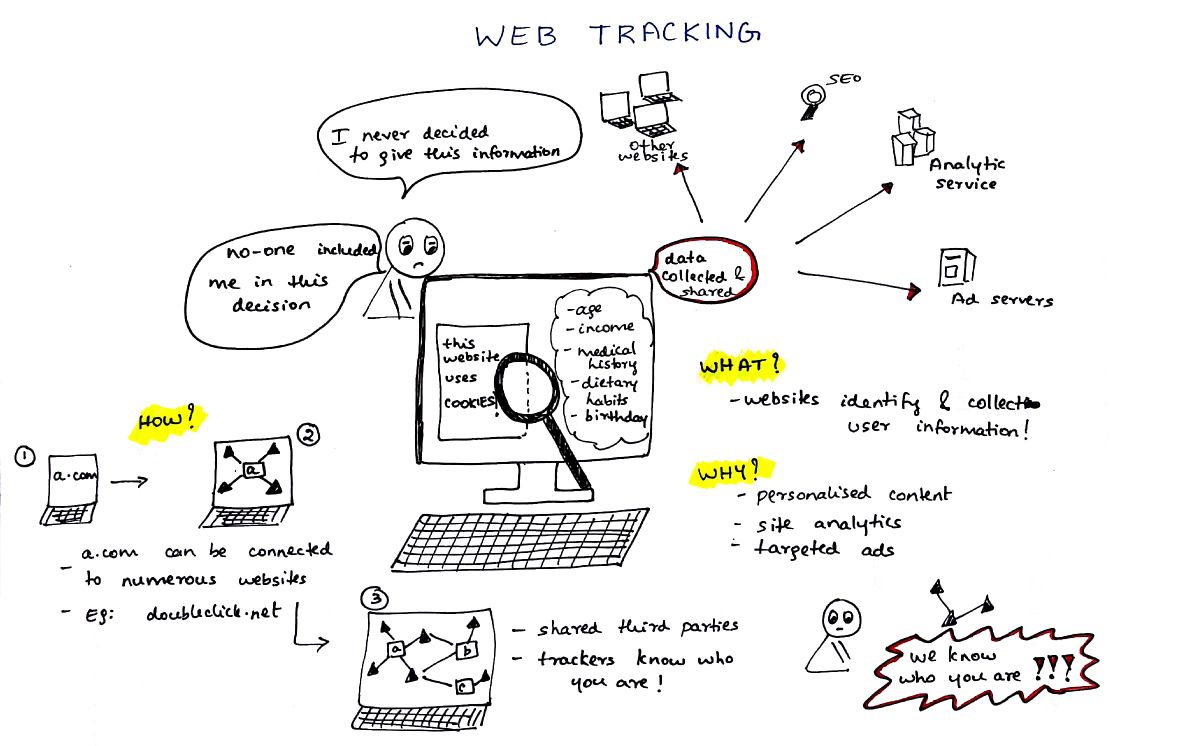 WEB TRACKING
I never decided
to give this information
no-one included
me in this
decision
other
websites
SEO
Analytic
service
Ad servers
data
collected &
shared
this
website
uses
COOKIES!
- age
- income
- medical
history
- dietary
habits
- birthday
WHAT?
- websites identify & collect
user information!
WHY?
- personalised content
- site analytics
- targeted ads
HOW?
1
a.com
2
a
- a.com can be connected
to numerous websites
- Eg: doubleclick.net
3
a
b
c
- shared third parties
- trackers know who
you are!
we know
who you are ???